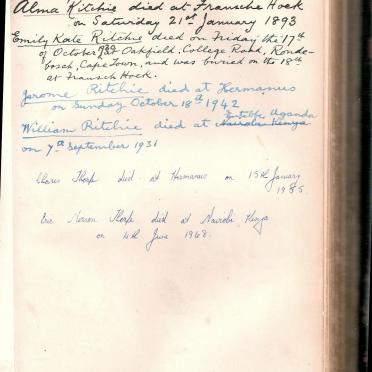 Alma Ritchie died at Fransche Hoek
on Saturday 21st January 1893
Emily Kate Ritchie died on Friday the 17th
of October at Oakfield, College Road, Ronde-
bosch, Cape Town, and was buried on the 18th
at Fransch Hoek.
Jerome Ritchie died at Hermanus
on Sunday October 18th 1942
Entebbe Uganda
William Ritchie died at Nairobi Kenya
on 7th September 1931
Thorp died at Hermanus on 15th January
1935
Eric Thorp died at Nairobi, Kenya
on 4th June 1968.